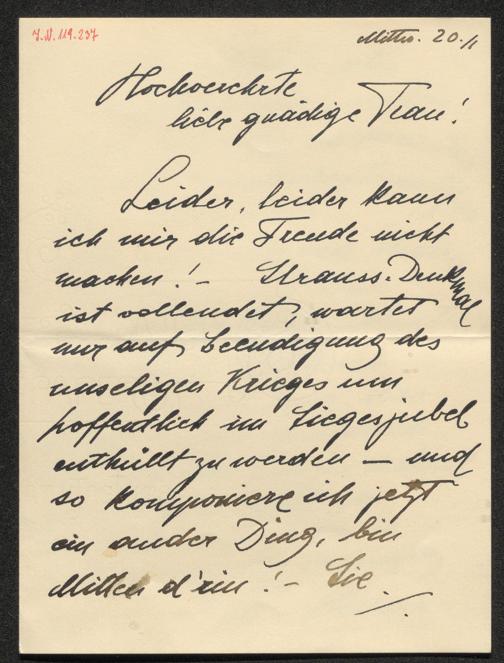 J.N. 119.237
Mittw. 20./1
Hochverehrte
liebe gnädige Frau!
Leider, leider kann
ich mir die Freude nicht
machen! – Strauss-Denkmal
ist vollendet, wartet
nur auf Beendigung des
unseligen Krieges um
hoffentlich im Siegesjubel
enthüllt zu werden – und
so komponiere ich jetzt
ein ander Ding, bin
Mitten d'rin! – Sie